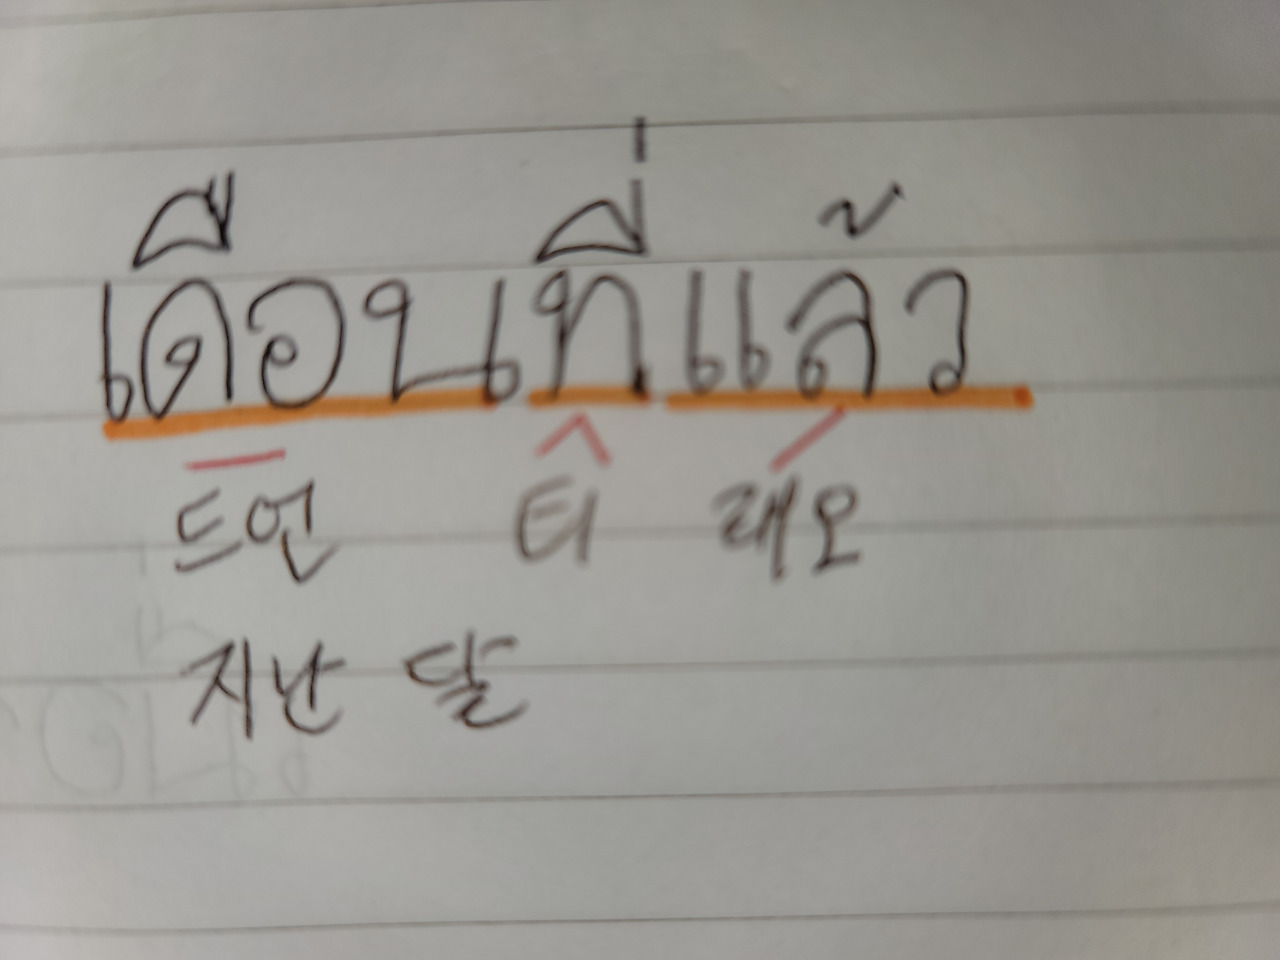 เดือนที่แล้ว
드언 티 래오
지난 달